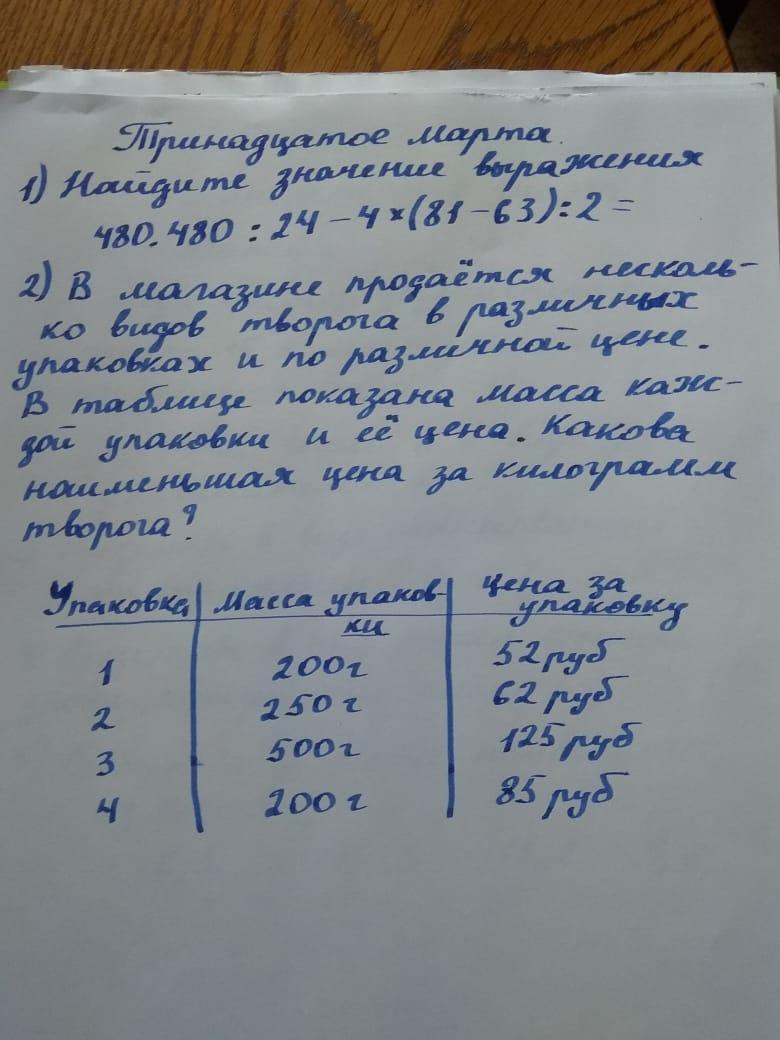 Тринадцатое марта.
1) Найдите значение выражения
480.480 : 24 - 4 × (81 - 63) : 2 =
2) В магазине продаётся несколь-
ко видов творога в различных
упаковках и по различной цене.
В таблице показана масса каж-
дой упаковки и её цена. Какова
наименьшая цена за килограмм
творога?
Упаковка | Масса упаков- | Цена за
ки | упаковку
1 | 200г | 52 руб
2 | 250 г | 62 руб
3 | 500г | 125 руб
4 | 200 г | 85 руб